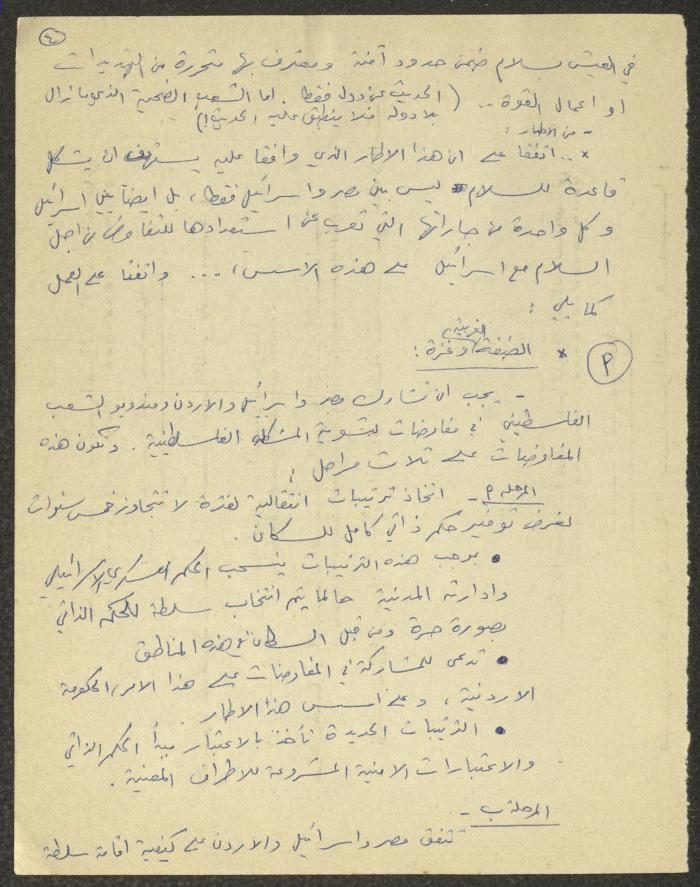 ٤
في العيش بسلام ضمن حدود آمنة ومعترف بها متحررة من التهديدات
او اعمال القوة .. (الحديث عن دولة فقط. اما الشعب الضحية الذي ما زال
بلا دولة فلا ينطبق عليه الحديث!)
- من الاطار:
* .. اتفقا على ان هذا الاطار الذي وافقا عليه يستهدف ان يشكل
قاعدة للسلام ليس بين مصر واسرائيل فقط، بل ايضا بين اسرائيل
وكل واحدة من جاراتها التي تعرب عن استعدادها للتفاوض من اجل
السلام مع اسرائيل على هذه الاسس، ... واتفقا على العمل
كما يلي:
أ * الضفة الغربية وغزة:
- يجب ان تشارك مصر واسرائيل والاردن ومندوبو الشعب
الفلسطيني في مفاوضات لتسوية المشكلة الفلسطينية. وتكون هذه
المفاوضات على ثلاث مراحل:
المرحلة أ - اتخاذ ترتيبات انتقالية لفترة لا تتجاوز خمس سنوات
لغرض توفير حكم ذاتي كامل للسكان.
• بموجب هذه الترتيبات ينسحب الحكم العسكري الاسرائيلي
وادارته المدنية حالما يتم انتخاب سلطة للحكم الذاتي
بصورة حرة ومن قبل السكان في هذه المناطق
• تدعى للمشاركة في المفاوضات على هذا الامر، الحكومة
الاردنية، وعلى اسس هذا الاطار.
• الترتيبات الجديدة تأخذ بالاعتبار مبدأ الحكم الذاتي
والاعتبارات الامنية المشروعة للاطراف المعنية.
المرحلة ب -
تتفق مصر واسرائيل والاردن على كيفية اقامة سلطة